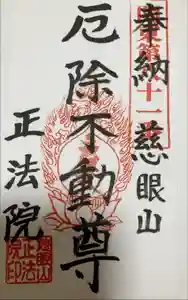 奉納
慈眼山
厄除不動尊
正法院
第十一
慈眼山
正法
院印